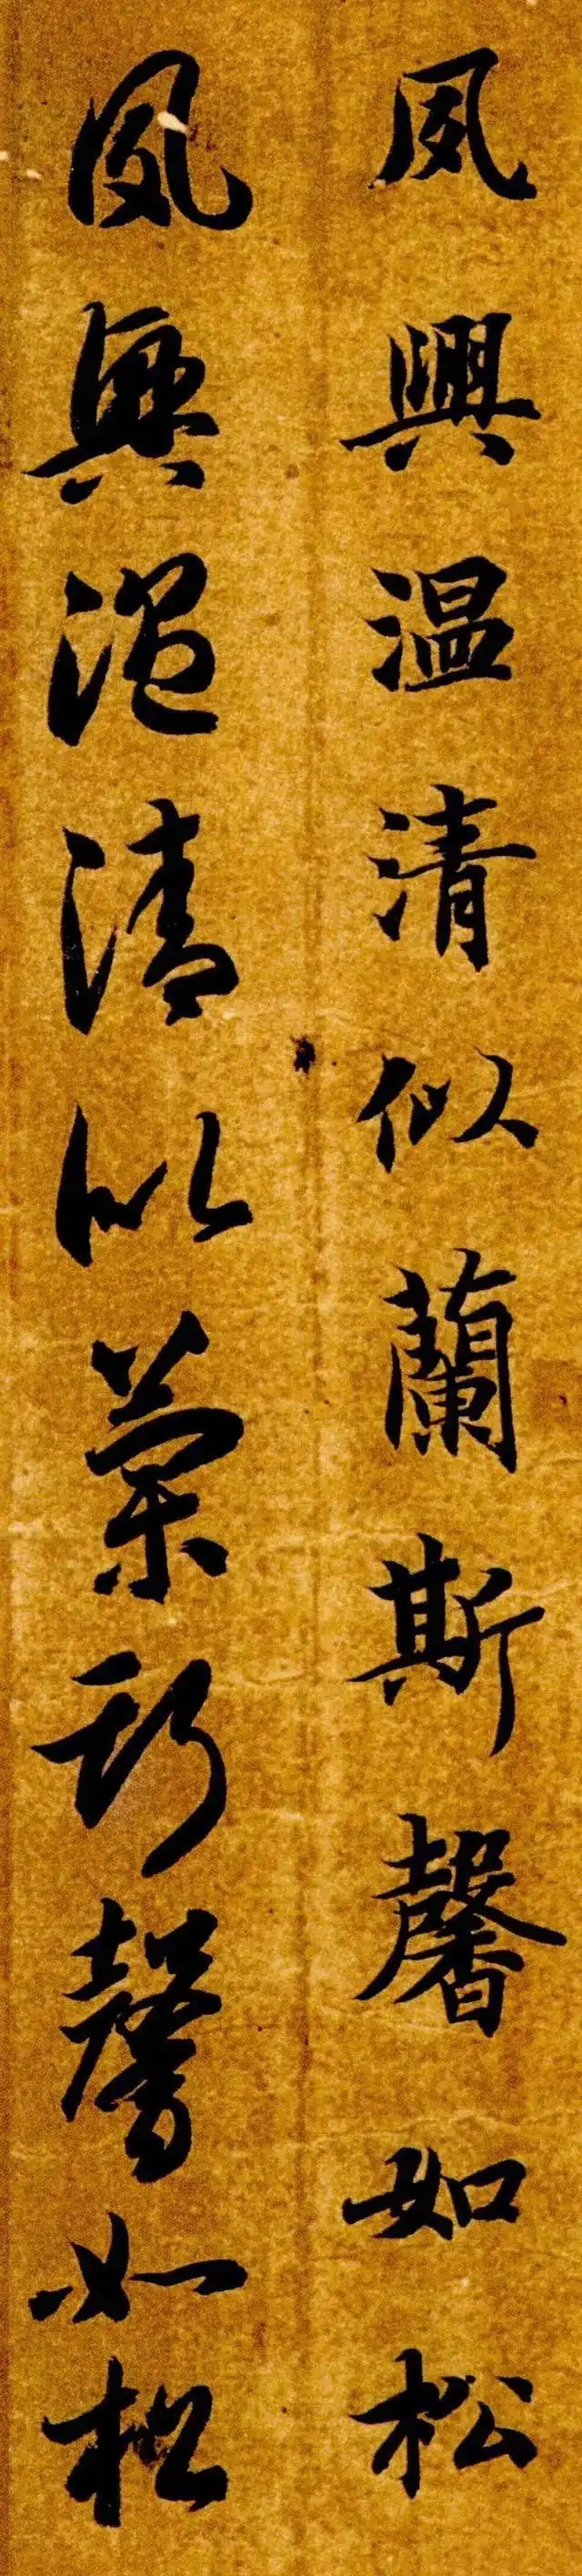 夙興温清似蘭斯馨如松
夙興温清似蘭斯馨如松